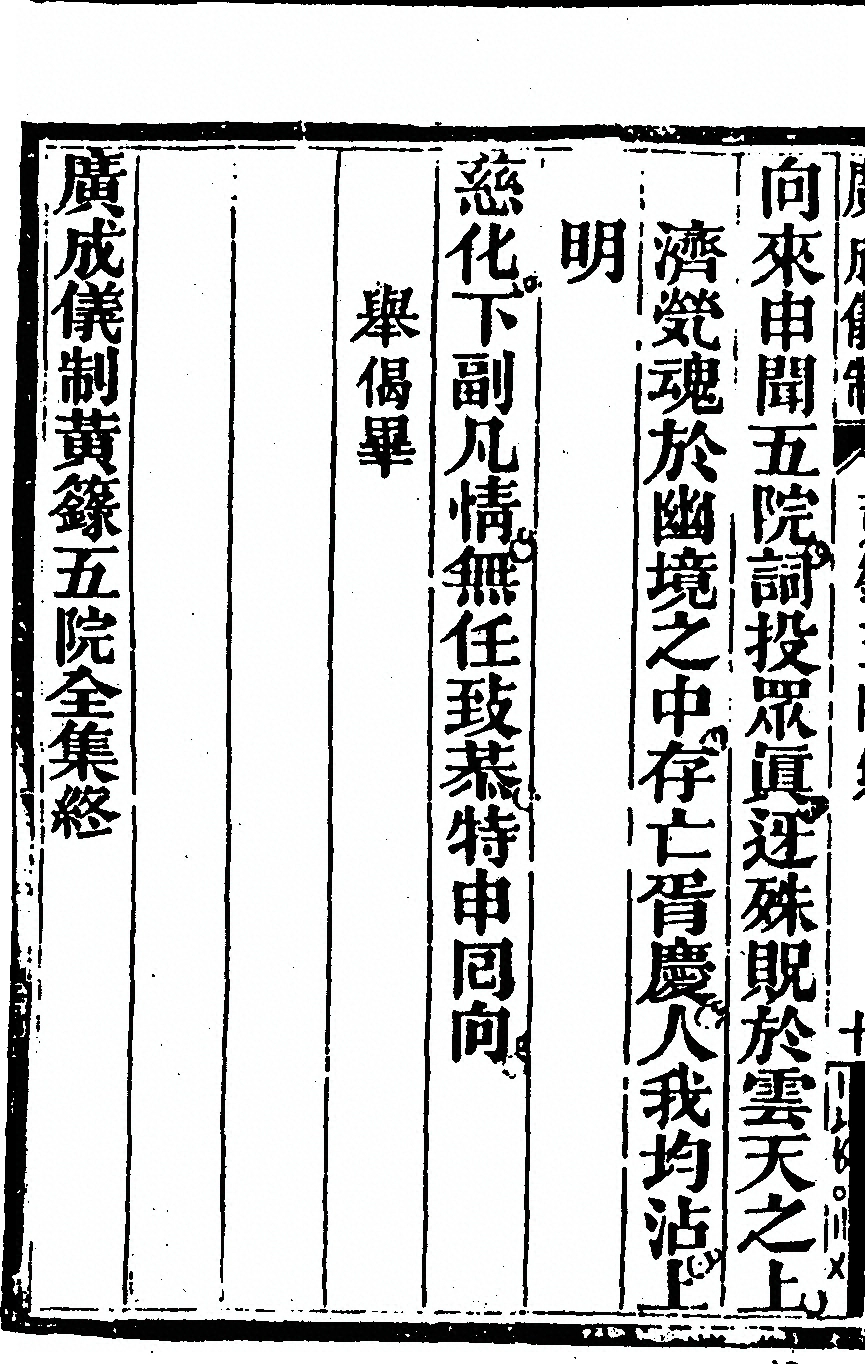 向來申聞五院詞投眾眞迓殊貺於雲天之上
濟煢魂於幽境之中存亡胥慶人我均沾上
明
慈化下副凡情無任致慕特申囘向
舉偈畢
廣成儀制黃籙五院全集終